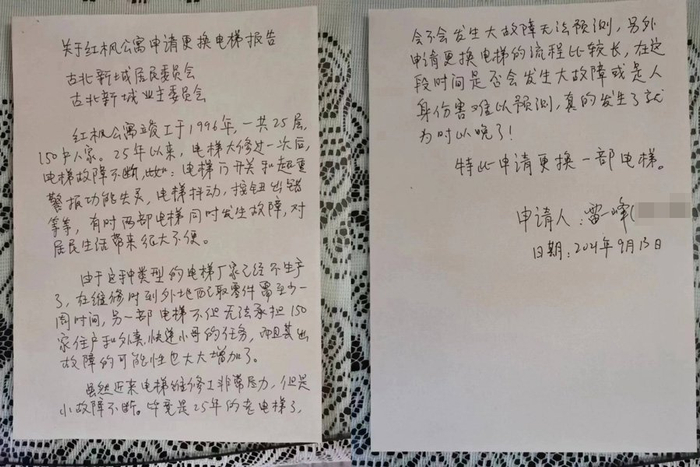 关于红枫公寓申请更换电梯报告
古北新城居民委员会
古北新城业主委员会
红枫公寓竣工于1996年，一共25层，
150户人家。25年以来，电梯大修过一次后，
电梯故障不断，比如：电梯门开关和超重
警报功能失灵，电梯抖动，按钮出错
等等，有时两部电梯同时发生故障，对
居民生活带来很大不便。
由于这种类型的电梯厂家已经不生产
了，在维修时到外地配取零件需至少一
周时间，另一部电梯不但无法承担150
家住户和外卖、快递小哥的任务，而且其出
故障的可能性也大大增加了。
虽然近来电梯维修工非常尽力，但是
小故障不断。毕竟是25年的老电梯了，
会不会发生大故障无法预测，另外
申请更换电梯的流程比较长，在这
段时间是否会发生大故障或是人
身伤害难以预测，真的发生了就
为时以晚了！
特此申请更换一部电梯。
申请人：雷一峰(
日期：2021年9月13日